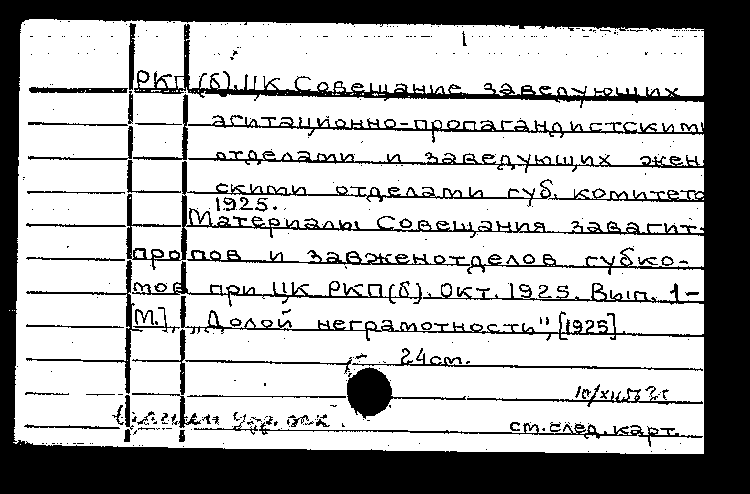 РКП(б). ЦК. Совещание заведующих
агитационно-пропагандистскими
отделами и заведующих жен-
скими отделами губ. комитето
1925.
Материалы Совещания завагит-
пропов и завженотделов губко-
мов при ЦК РКП(б). Окт. 1925. Вып. 1-
[М.], "Долой неграмотность", [1925].
24 см.
см. след. карт.